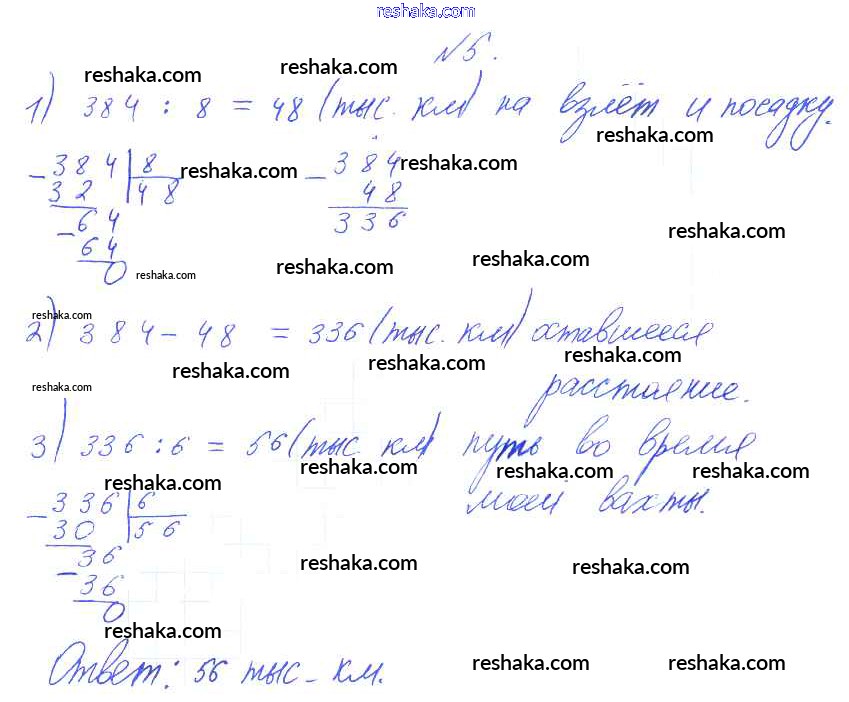 reshaka.com
№5.
reshaka.com reshaka.com
1) 384 : 8 = 48 (тыс. км) на взлёт и посадку.
reshaka.com
384 | 8
32 | 48
64
64
0
- 384
48
336
reshaka.com reshaka.com
reshaka.com
reshaka.com reshaka.com reshaka.com
reshaka.com
2) 384 - 48 = 336 (тыс. км) оставшееся
reshaka.com reshaka.com reshaka.com
расстояние.
reshaka.com
3) 336 : 6 = 56 (тыс. км) путь во время
reshaka.com reshaka.com reshaka.com reshaka.com
моей вахты.
- 336 | 6
30 | 56
- 36
36
0
reshaka.com reshaka.com
reshaka.com
Ответ: 56 тыс. км.
reshaka.com reshaka.com